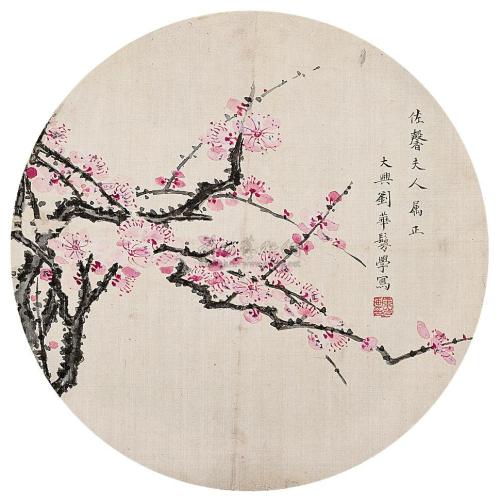 佐馨夫人属正
大興劉華鬘學寫